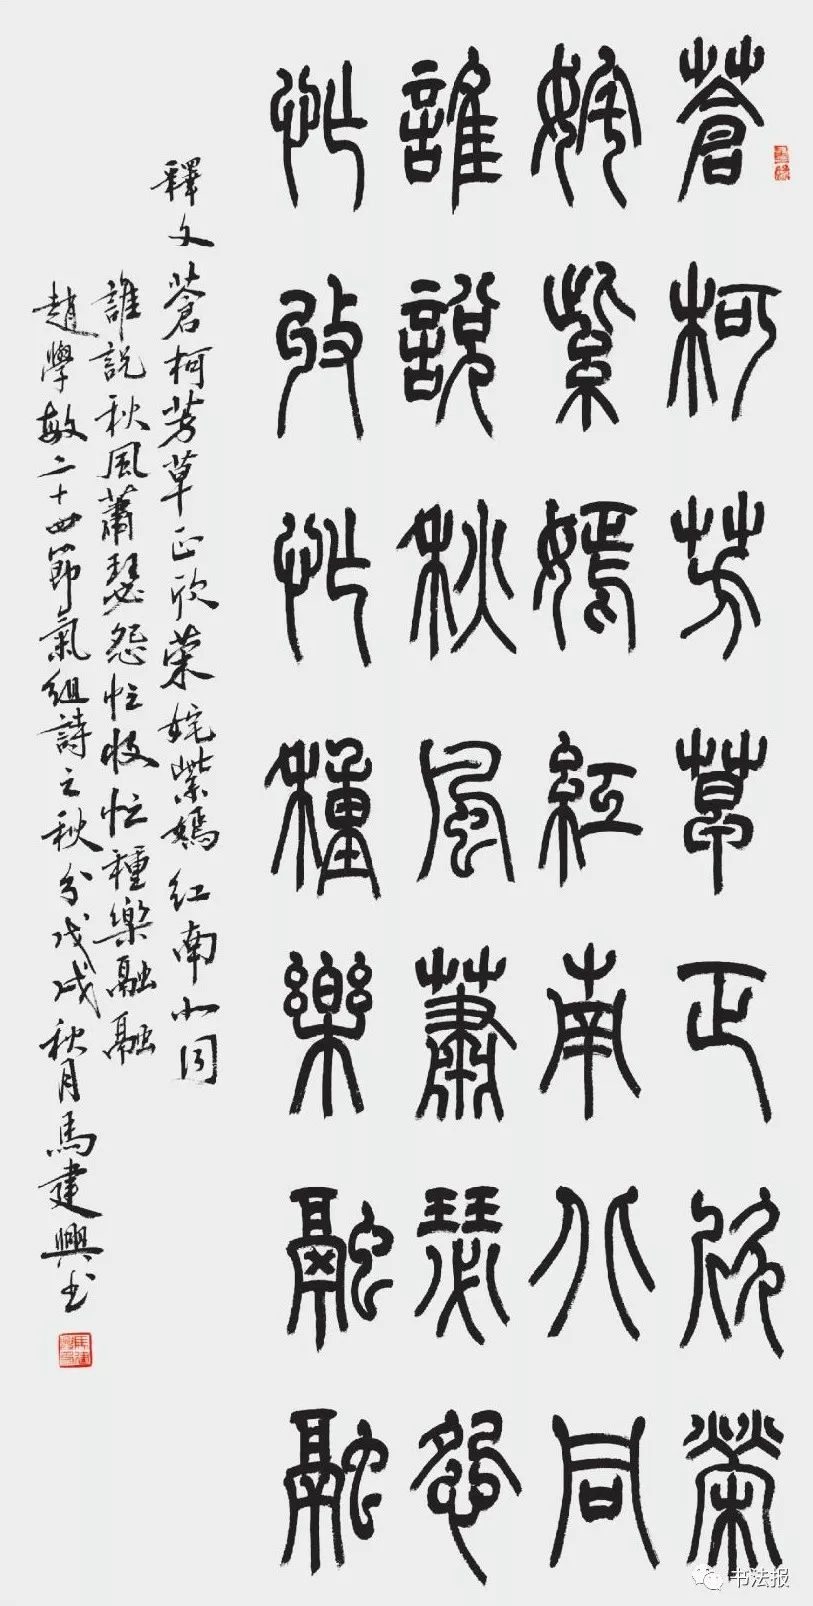 蒼柯芳草正欣榮
姹紫嫣紅南北同
誰說秋風蕭瑟怨
忙收忙種樂融融
釋文蒼柯芳草正欣榮姹紫嫣红南北同
誰說秋風蕭瑟怨忙收忙種樂融融
趙學敏二十四節氣組詩之秋分戊戌秋月馬建興书
书法报